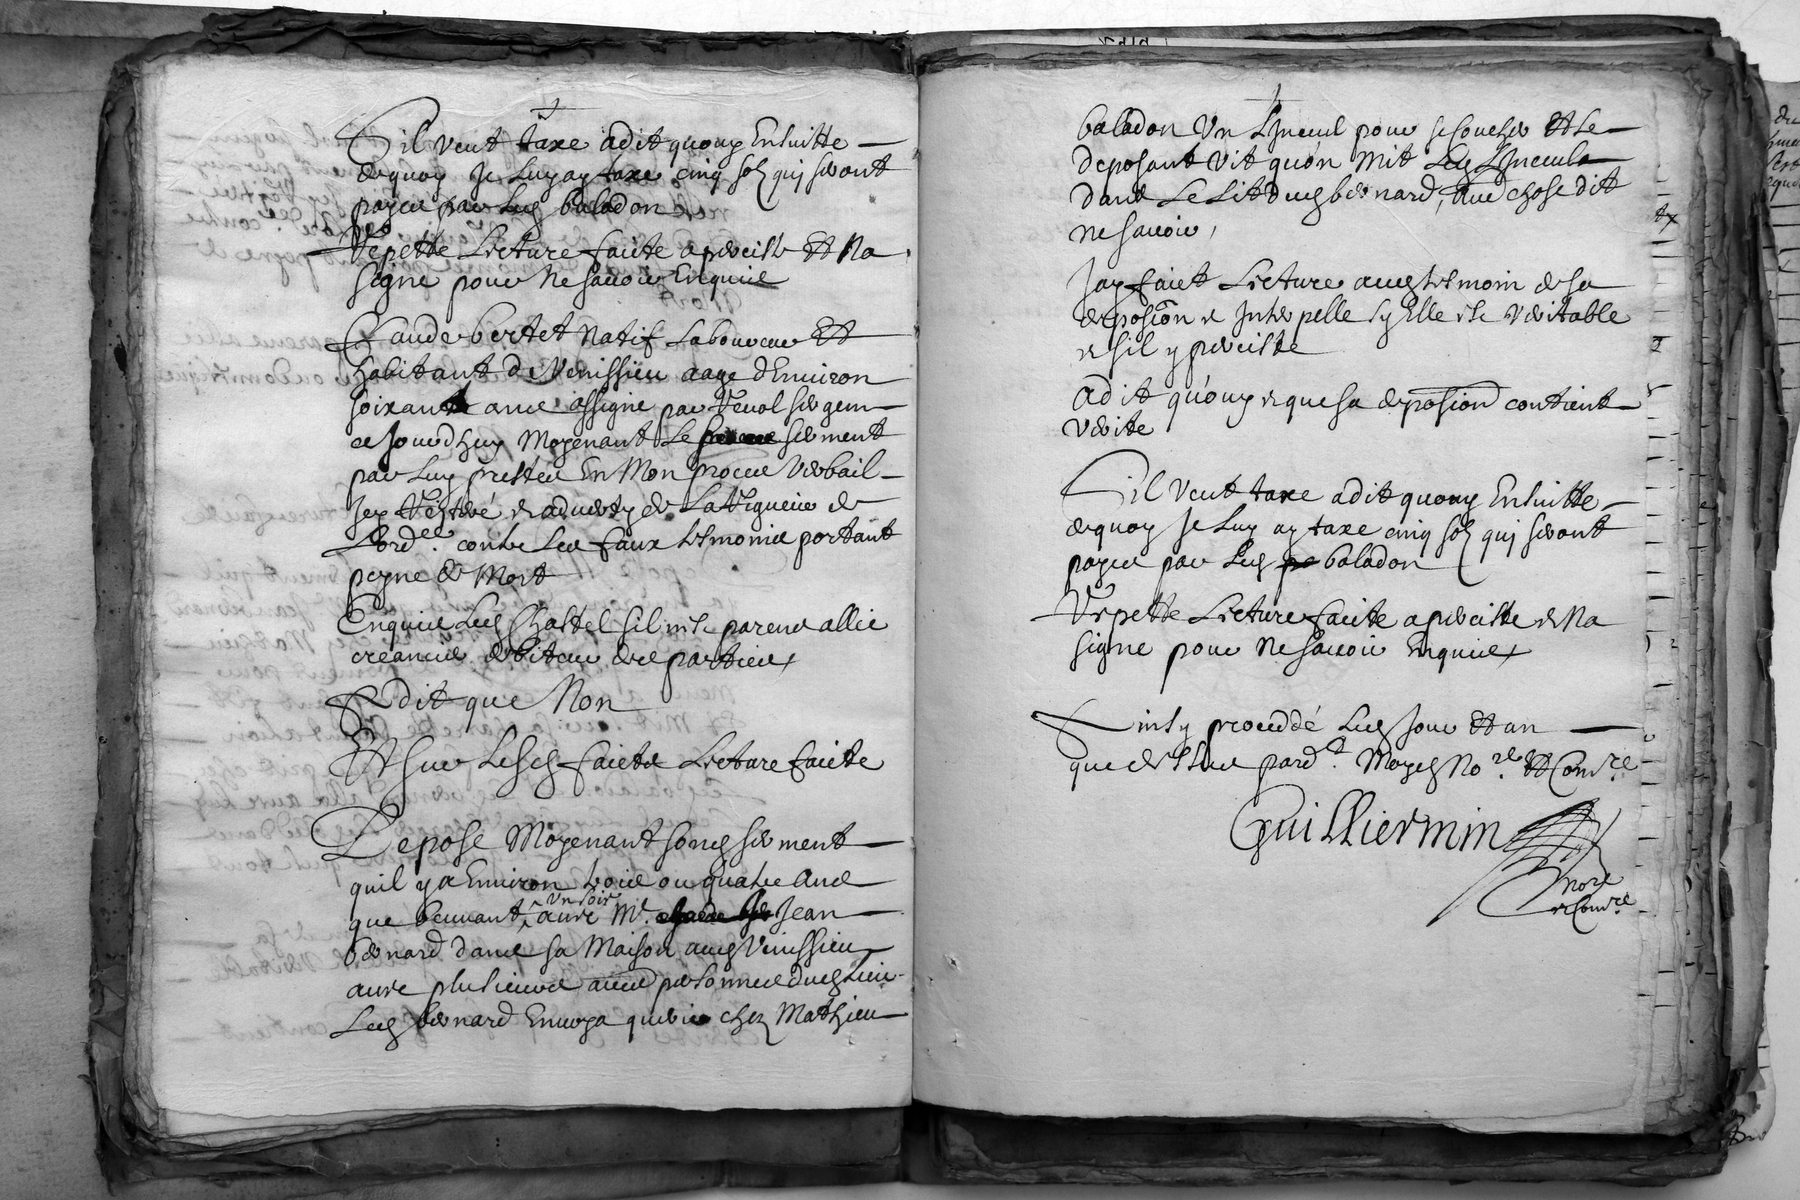 Sil veut taxe a dit quouy Ensuitte
de quoy Je Luy ay taxe cinq solz quj seront
payes par Led baladon
Repette Lecture faite a persiste Et Na
signe pour Ne scavoir Enquis
Claude bertet Natif Laboureur Et
habitant de Venissieu aage dEnviron
soixante ans assigne par Revol sergent
ce Jourdhuy Moyenant Le serment
par Luy preste En Mon proces Verbail
Jey Reytere et adverty de La Rigueur de
Lordce. contre Les faux tesmoins portant
peyne de Mort
Enquis Led Chastel sil est parent allie
creancier debiteur des parties
A dit que Non
Et sur Lesd faicts Lecture faicte
Depose Moyenant sond serment
quil y a Environ trois ou quatre ans
que beuvant un soir avec Mr. Jean
bernard dans sa Maison aud Venissieu
avec plusieurs autres personnes dud Lieu
Led bernard Envoya querir chez Mathieu
baladon Un Linceul pour se coucher Et Le
deposant vit quon mit Led Linceul
dans Le Lit dud bernard, autre chose dit
ne scavoir,
Jay faict Lecture aud tesmoin de sa
deposion et Interpelle sy Elle est veritable
et sil y persiste
a dit quouy et que sa deposion contient
verite
Sil Veut taxe a dit quouy Ensuitte
de quoy Je Luy ay taxe cinq solz quj seront
payes par Led baladon
Repette Lecture faite a persiste et Na
signe pour Ne scavoir Enquis
Ainsy procedde Les Jour Et an
que dessus pardt. Moyd Nore Et Comre
Guilliermin
nore
et Comre